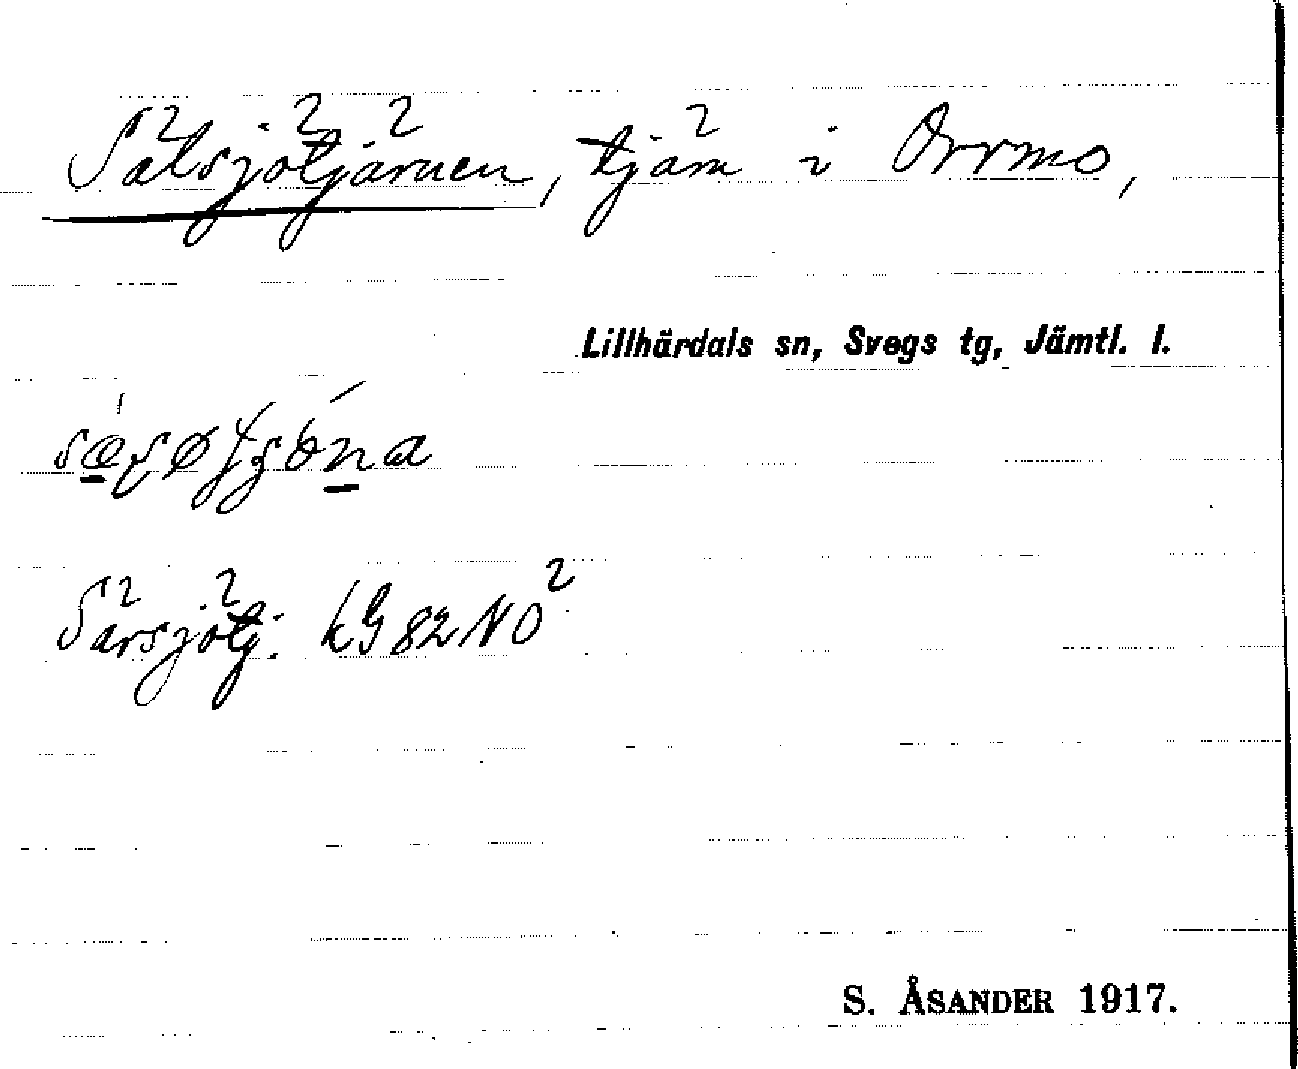 Sälsjötjärnen, tjärn i Orrmo,
Lillhärdals sn, Svegs tg, Jämtl. l.
Särsjötj. kG 82 NO²
S. ÅSANDER 1917.